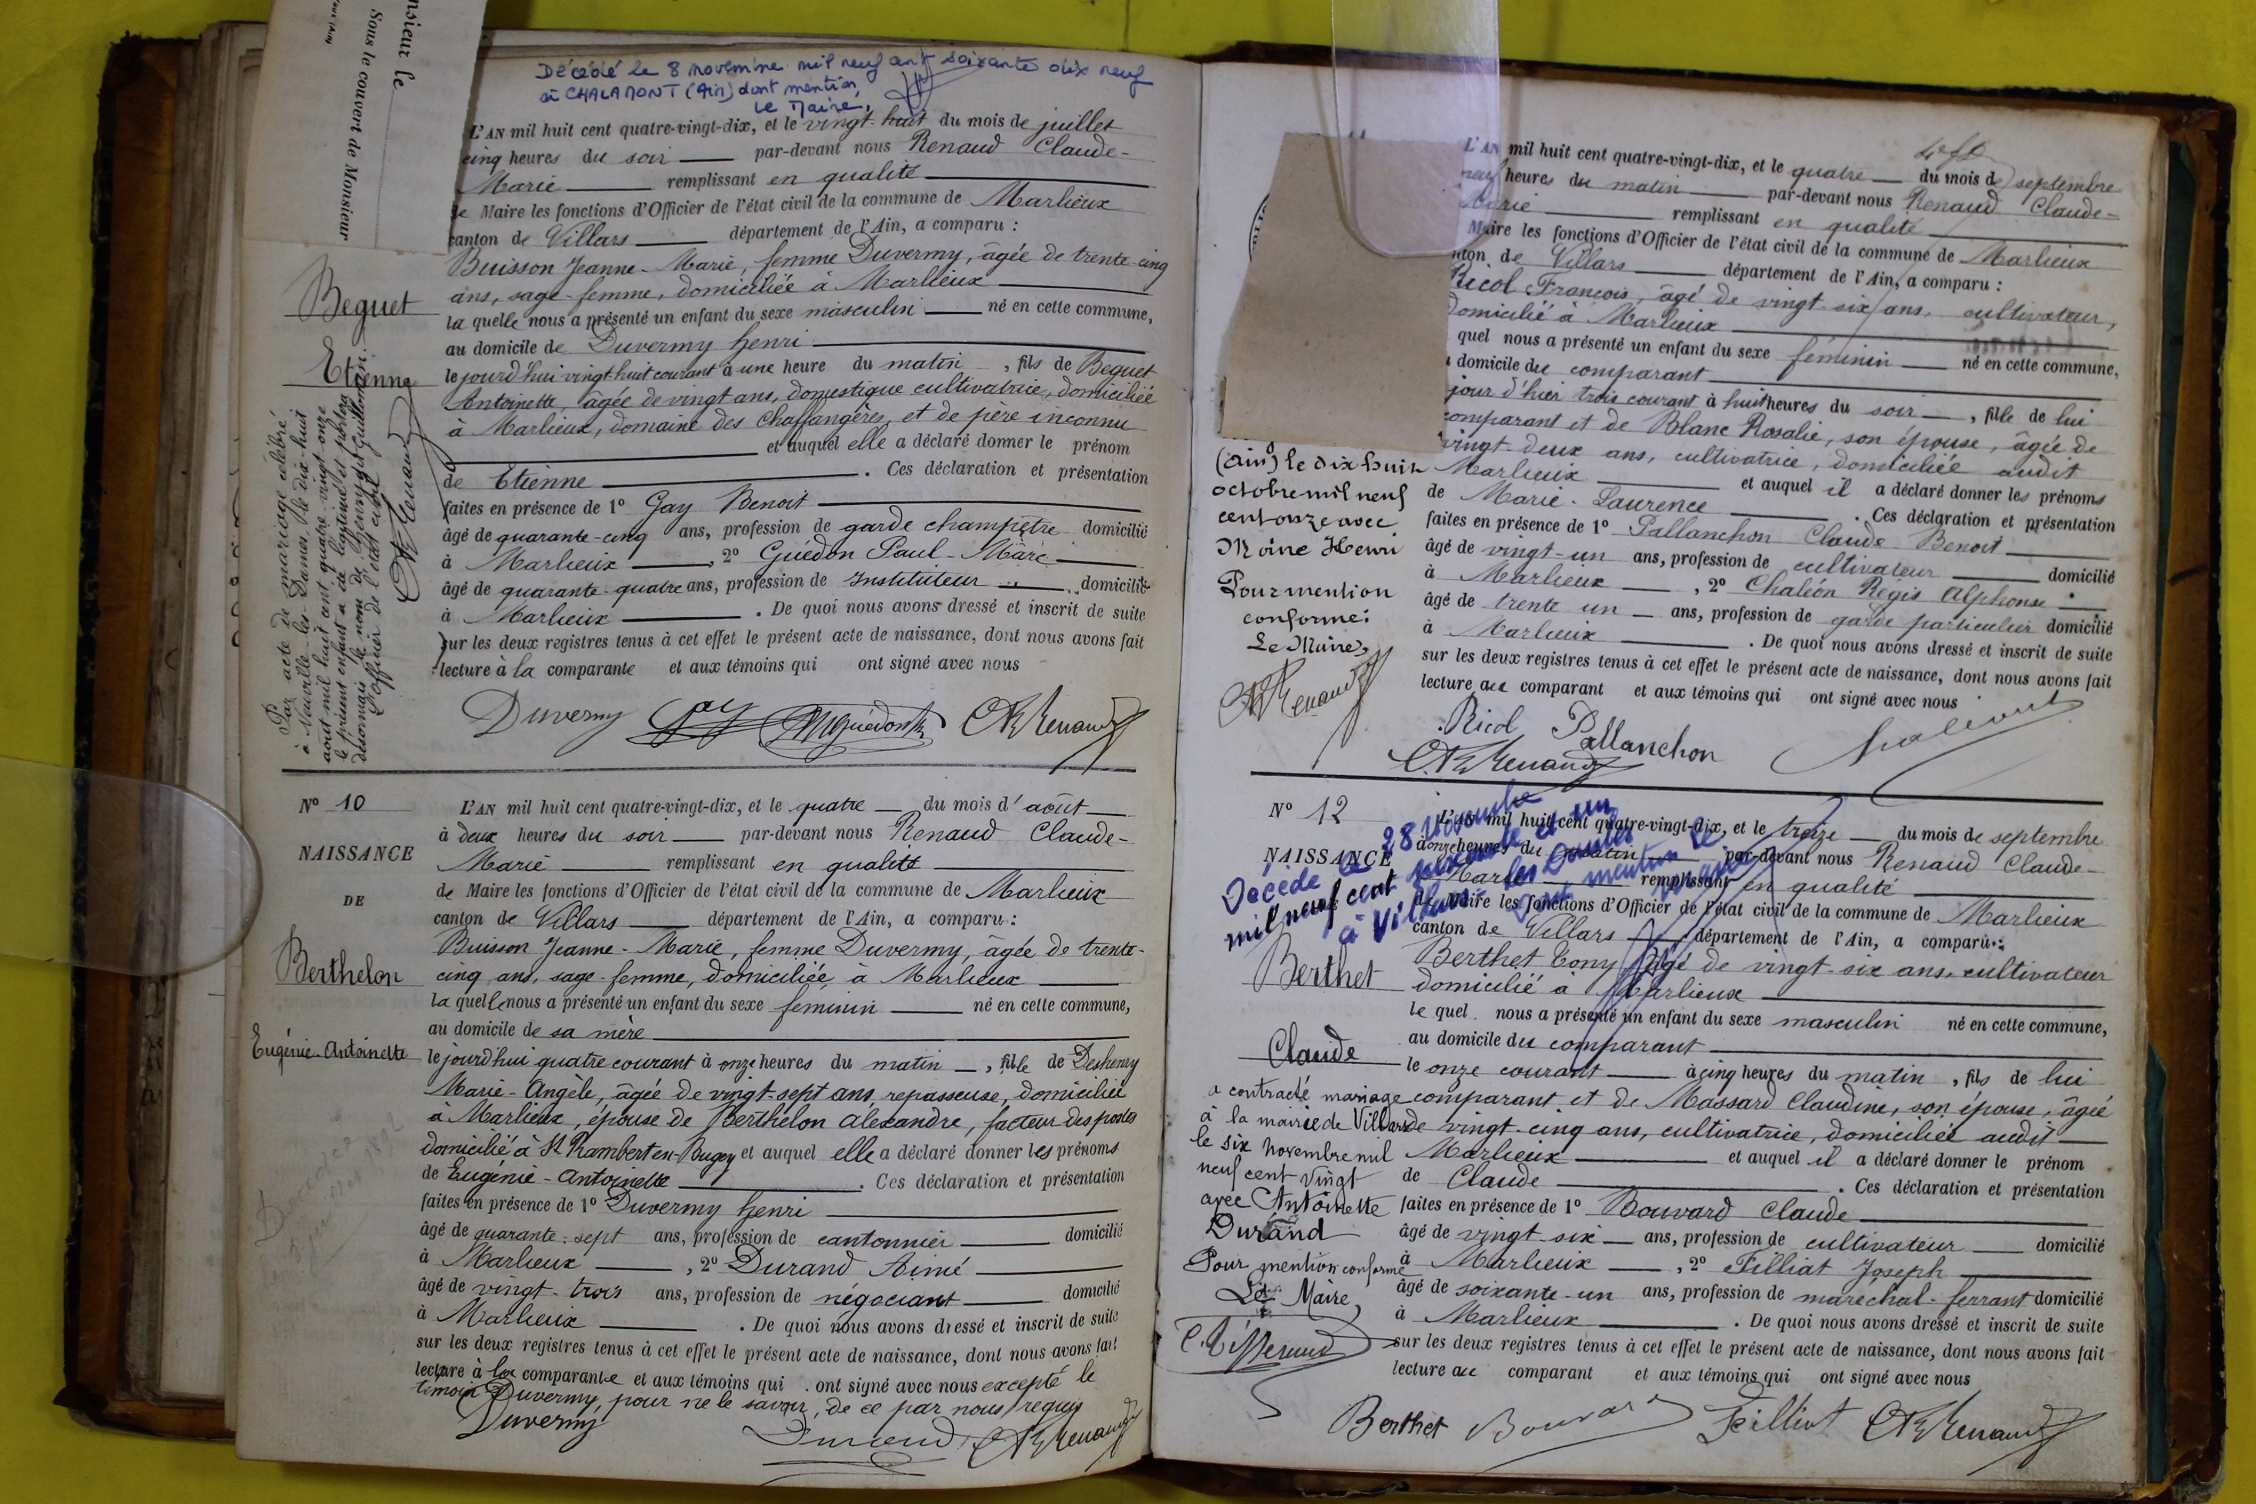 nsieur le
Sous le couvert de Monsieur
Décédé le 8 novembre mil neuf cent soixante dix neuf
à CHALAMONT (Ain) dont mention
Le Maire,
L'AN mil huit cent quatre-vingt-dix, et le vingt-huit du mois de juillet
cinq heures du soir par-devant nous Renaud Claude-
Marie remplissant en qualité
de Maire les fonctions d'Officier de l'état civil de la commune de Marlieux
canton de Villars département de l'Ain, a comparu :
Buisson Jeanne-Marie, femme Duvermy, âgée de trente-cinq
ans, sage-femme, domiciliée à Marlieux
la quelle nous a présenté un enfant du sexe masculin né en cette commune,
au domicile de Duvermy Henri
le jourd'hui vingt-huit courant à une heure du matin, fils de Beguet
Antoinette, âgée de vingt ans, domestique cultivatrice, domiciliée
à Marlieux, domaine des Chaffangères, et de père inconnu
et auquel elle a déclaré donner le prénom
de Etienne . Ces déclaration et présentation
faites en présence de 1° Gay Benoit
âgé de quarante-cinq ans, profession de garde champêtre domicilié
à Marlieux , 2° Guédon Paul-Marc
âgé de quarante-quatre ans, profession de Instituteur domicilié
à Marlieux . De quoi nous avons dressé et inscrit de suite
sur les deux registres tenus à cet effet le présent acte de naissance, dont nous avons fait
lecture à la comparante et aux témoins qui ont signé avec nous
Duvermy Gay Guédon Renaud
Beguet
Etienne
Par acte de mariage célébré
à Neuville-les-Dames, le dix-huit
août mil huit cent quatre-vingt-onze
le présent enfant a été légitimé et portera
désormais le nom de
L'officier de l'état civil
Renaud
N° 10
NAISSANCE
DE
Berthelon
Eugénie-Antoinette
Décédée
L'AN mil huit cent quatre-vingt-dix, et le quatre du mois d'août
à deux heures du soir par-devant nous Renaud Claude-
Marie remplissant en qualité
de Maire les fonctions d'Officier de l'état civil de la commune de Marlieux
canton de Villars département de l'Ain, a comparu :
Buisson Jeanne-Marie, femme Duvermy, âgée de trente-
cinq ans, sage-femme, domiciliée à Marlieux
la quelle nous a présenté un enfant du sexe féminin né en cette commune,
au domicile de sa mère
le jourd'hui quatre courant à onze heures du matin , fille de Deshenry
Marie-Angèle, âgée de vingt-sept ans, repasseuse, domiciliée
à Marlieux, épouse de Berthelon Alexandre, facteur des postes
domicilié à St Rambert en-Bugey et auquel elle a déclaré donner les prénoms
de Eugénie-Antoinette . Ces déclaration et présentation
faites en présence de 1° Duvermy Henri
âgé de quarante-sept ans, profession de cantonnier domicilié
à Marlieux , 2° Durand Aimé
âgé de vingt-trois ans, profession de négociant domicilié
à Marlieux . De quoi nous avons dressé et inscrit de suite
sur les deux registres tenus à cet effet le présent acte de naissance, dont nous avons fait
lecture à la comparante et aux témoins qui ont signé avec nous excepté le
témoin Duvermy, pour ne le savoir, de ce par nous requis
Duvermy Durand Renaud
L'AN mil huit cent quatre-vingt-dix, et le quatre du mois de septembre
neuf heures du matin par-devant nous Renaud Claude-
Marie remplissant en qualité
Maire les fonctions d'Officier de l'état civil de la commune de Marlieux
nton de Villars département de l'Ain, a comparu :
Ricol François, âgé de vingt-six ans, cultivateur,
domicilié à Marlieux
quel nous a présenté un enfant du sexe féminin né en cette commune,
domicile du comparant
jour d'hier trois courant à huit heures du soir , fille de lui
comparant et de Blanc Rosalie, son épouse, âgée de
vingt-deux ans, cultivatrice, domiciliée audit
Marlieux et auquel il a déclaré donner les prénoms
de Marie-Laurence . Ces déclaration et présentation
faites en présence de 1° Pallanchon Claude Benoit
âgé de vingt-un ans, profession de cultivateur domicilié
à Marlieux , 2° Chaléon Régis Alphonse
âgé de trente un ans, profession de garde particulier domicilié
à Marlieux . De quoi nous avons dressé et inscrit de suite
sur les deux registres tenus à cet effet le présent acte de naissance, dont nous avons fait
lecture au comparant et aux témoins qui ont signé avec nous
Ricol Pallanchon
Renaud
(Ain) le dix huit
octobre mil neuf
cent onze avec
Moine Henri
Pour mention
conforme:
Le Maire,
Renaud
N° 12
NAISSANCE
Décédé le 28 décembre
mil neuf cent soixante et un
à Villars les Dombes
dont mention le
Berthet
Claude
a contracté mariage
à la mairie de Villars
le six novembre mil
neuf cent vingt
avec Antoinette
Durand
Pour mention conforme
Le Maire,
L'AN mil huit cent quatre-vingt-dix, et le treize du mois de septembre
à onze heures du matin par-devant nous Renaud Claude-
Marie remplissant en qualité
de Maire les fonctions d'Officier de l'état civil de la commune de Marlieux
canton de Villars département de l'Ain, a comparu :
Berthet Tony âgé de vingt-six ans, cultivateur
domicilié à Marlieux
le quel nous a présenté un enfant du sexe masculin né en cette commune,
au domicile du comparant
le onze courant à cinq heures du matin , fils de lui
comparant et de Massard Claudine, son épouse, âgée
de vingt-cinq ans, cultivatrice, domiciliée audit
Marlieux et auquel il a déclaré donner le prénom
de Claude . Ces déclaration et présentation
faites en présence de 1° Bouvard Claude
âgé de vingt-six ans, profession de cultivateur domicilié
à Marlieux , 2° Filliat Joseph
âgé de soixante-un ans, profession de maréchal-ferrant domicilié
à Marlieux . De quoi nous avons dressé et inscrit de suite
sur les deux registres tenus à cet effet le présent acte de naissance, dont nous avons fait
lecture au comparant et aux témoins qui ont signé avec nous
Berthet Bouvard Filliat Renaud